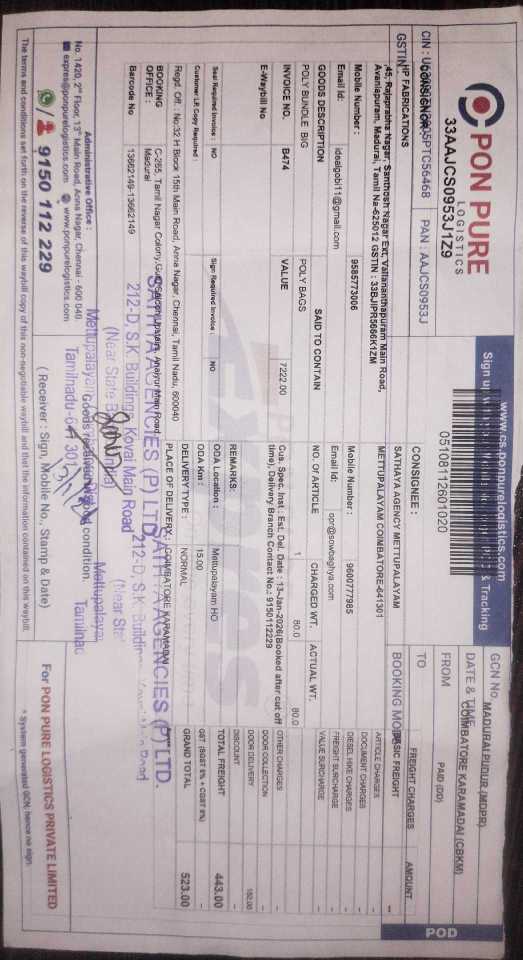 PON PURE
LOGISTICS
33AAJCS0953J1Z9
PAN : AAJCS0953J
GSTIN
www.cs.ponpurelogistics.com
Sign up
& Tracking
05108112601020
GCN No
DATE & TIME
FROM
MADURAI,PUDUR (MDPR)
TO
COIMBATORE KARAMADAI (CBKM)
BOOKING MODE
PAID (DD)
HP FABRICATIONS
45, Rajaprabha Nagar, Santhosh Nagar Ext, Vallananthapuram Main Road,
Avaniapuram, Madurai, Tamil Na-625012 GSTIN : 33BJIPR5666K1ZM
Mobile Number : 9585773006
Email Id: idealgobi11@gmail.com
CONSIGNEE :
SATHAYA AGENCY METTUPALAYAM
METTUPALAYAM COIMBATORE-641301
Mobile Number : 9600777985
Email Id: opr@sowbaghya.com
GOODS DESCRIPTION SAID TO CONTAIN NO. OF ARTICLE CHARGED WT. ACTUAL WT.
POLY BUNDLE BIG POLY BAGS 1 80.0 80.0
INVOICE NO. B474 VALUE 7222.00
E-Waybill No
Cus. Spec. Inst : Est. Del. Date : 13-Jan-2026(Booked after cut off
time), Delivery Branch Contact No.: 9150112229
REMARKS:
Seal Required Invoice : NO Sign Required Invoice : NO
Customer LR Copy Required :
ODA Location : Mettupalayam HO
ODA Km : 15.00
DELIVERY TYPE : NORMAL
PLACE OF DELIVERY : COIMBATORE KARAMADAI
Regd. Off. : No:32 H Block 15th Main Road, Anna Nagar, Chennai, Tamil Nadu, 600040
BOOKING OFFICE :
C-265, Tamil Nagar Colony,
Main Road,
Madurai
Barcode No 13662149-13662149
FREIGHT CHARGES AMOUNT
BASIC FREIGHT -
ARTICLE CHARGES -
DOCUMENT CHARGES -
DIESEL HIKE CHARGES -
FREIGHT SURCHARGE -
VALUE SURCHARGE -
OTHER CHARGES -
DOOR COLLECTION -
DOOR DELIVERY
DISCOUNT -
TOTAL FREIGHT 443.00
GST
GRAND TOTAL 523.00
SATHYA AGENCIES (P) LTD.
212-D, S.K. Building, Kovai Main Road
(Near State
Mettupalayam
Tamilnadu-641 301
SATHYA AGENCIES (P) LTD.
212-D, S.K. Building
Main Road
(Near Sta
Mettupalayam
Tamilnad
condition.
Administrative Office :
No. 1420, 2nd Floor, 13th Main Road, Anna Nagar, Chennai - 600 040.
expres@ponpurelogistics.com www.ponpurelogistics.com
9150 112 229
( Receiver : Sign, Mobile No., Stamp & Date)
For PON PURE LOGISTICS PRIVATE LIMITED
The terms and conditions set forth on the reverse of this waybill copy of this non-negotiable waybill and that the information contained on this waybill.
* System generated GCN, hence no sign.
POD